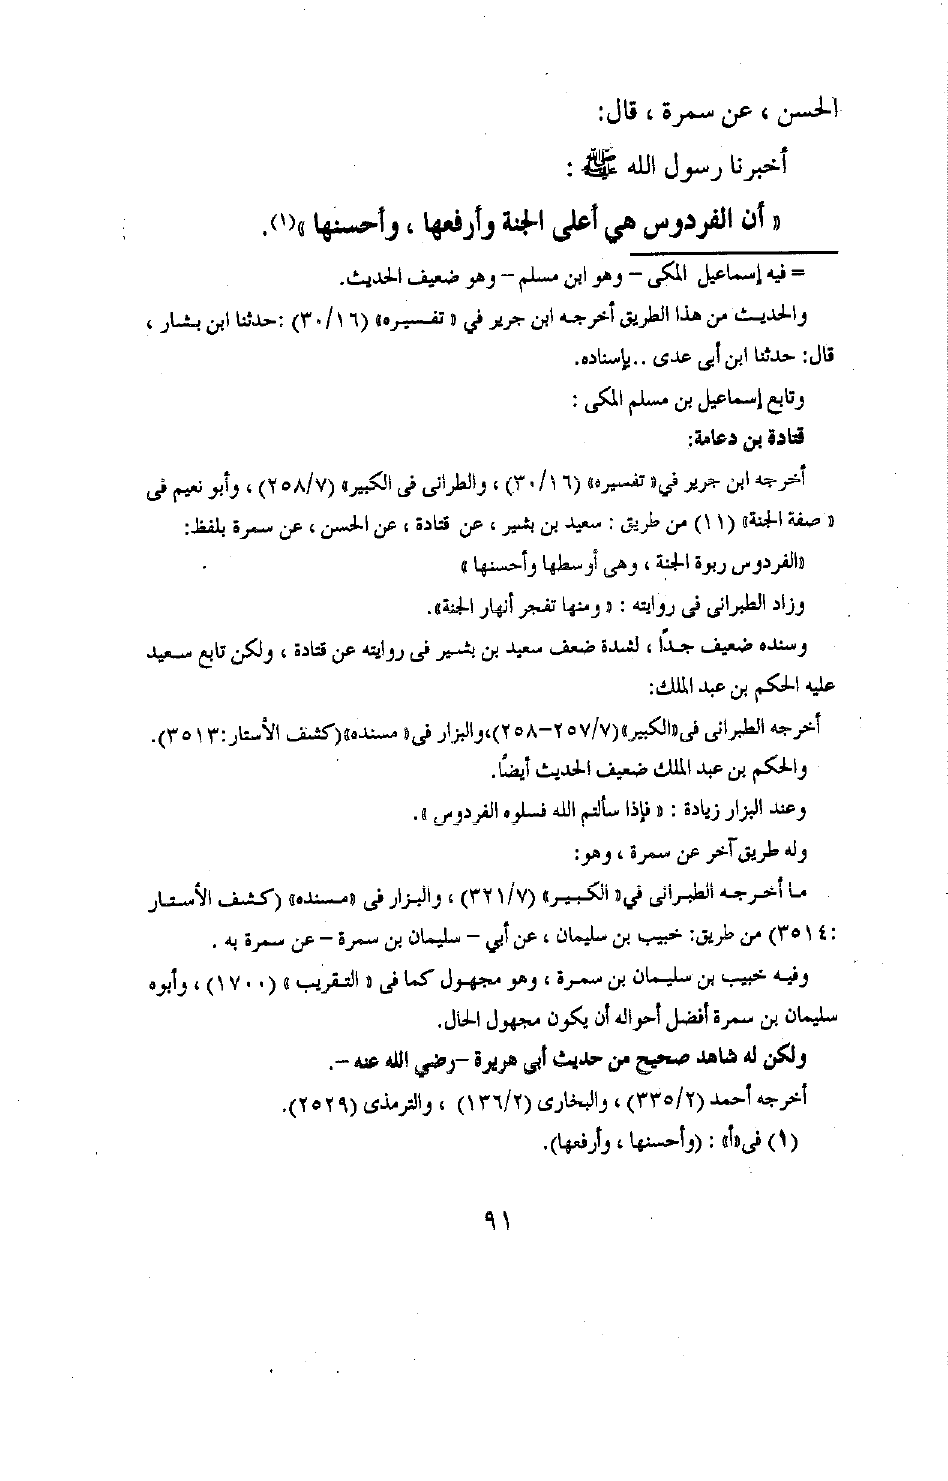 الحسن ، عن سمرة ، قال:
أخبرنا رسول الله ﷺ :
« أن الفردوس هي أعلى الجنة وأرفعها ، وأحسنها »(١).
= فيه إسماعيل المكى – وهو ابن مسلم – وهو ضعيف الحديث.
والحديث من هذا الطريق أخرجه ابن جرير في « تفسيره» (٣٠/١٦) :حدثنا ابن بشار ،
قال: حدثنا ابن أبى عدى ..بإسناده.
وتابع إسماعيل بن مسلم المكى :
قتادة بن دعامة:
أخرجه ابن جرير في« تفسيره» (٣٠/١٦) ، والطرانى فى الكبير» (٢٥٨/٧) ، وأبو نعيم فى
« صفة الجنة» (١١) من طريق : سعيد بن بشير ، عن قتادة ، عن الحسن ، عن سمرة بلفظ:
«الفردوس ربوة الجنة ، وهى أوسطها وأحسنها »
وزاد الطبرانى فى روايته : « ومنها تفجر أنهار الجنة».
وسنده ضعيف جدًا ، لشدة ضعف سعيد بن بشير فى روايته عن قتادة ، ولكن تابع سعيد
عليه الحكم بن عبد الملك:
أخرجه الطبرانى فى«الكبير»(٢٥٧/٧–٢٥٨)،والبزار فى« مسنده»(كشف الأستار:٣٥١٣).
والحكم بن عبد الملك ضعيف الحديث أيضًا.
وعند البزار زيادة : « فإذا سألتم الله فسلوه الفردوس ».
وله طريق آخر عن سمرة ، وهو:
ما أخرجه الطبرانى في« الكبير» (٣٢١/٧) ، والبزار فى «مسنده» (كشف الأستار
:٣٥١٤) من طريق: خبيب بن سليمان ، عن أبي – سليمان بن سمرة – عن سمرة به .
وفيه خبيب بن سليمان بن سمرة ، وهو مجهول كما فى « التقريب » (١٧٠٠) ، وأبوه
سليمان بن سمرة أفضل أحواله أن يكون مجهول الحال.
ولكن له شاهد صحيح من حديث أبى هريرة –رضي الله عنه –.
أخرجه أحمد (٣٣٥/٢) ، والبخارى (١٣٦/٢) ، والترمذى (٢٥٢٩).
(١) فى«أ» : (وأحسنها ، وأرفعها).
٩١